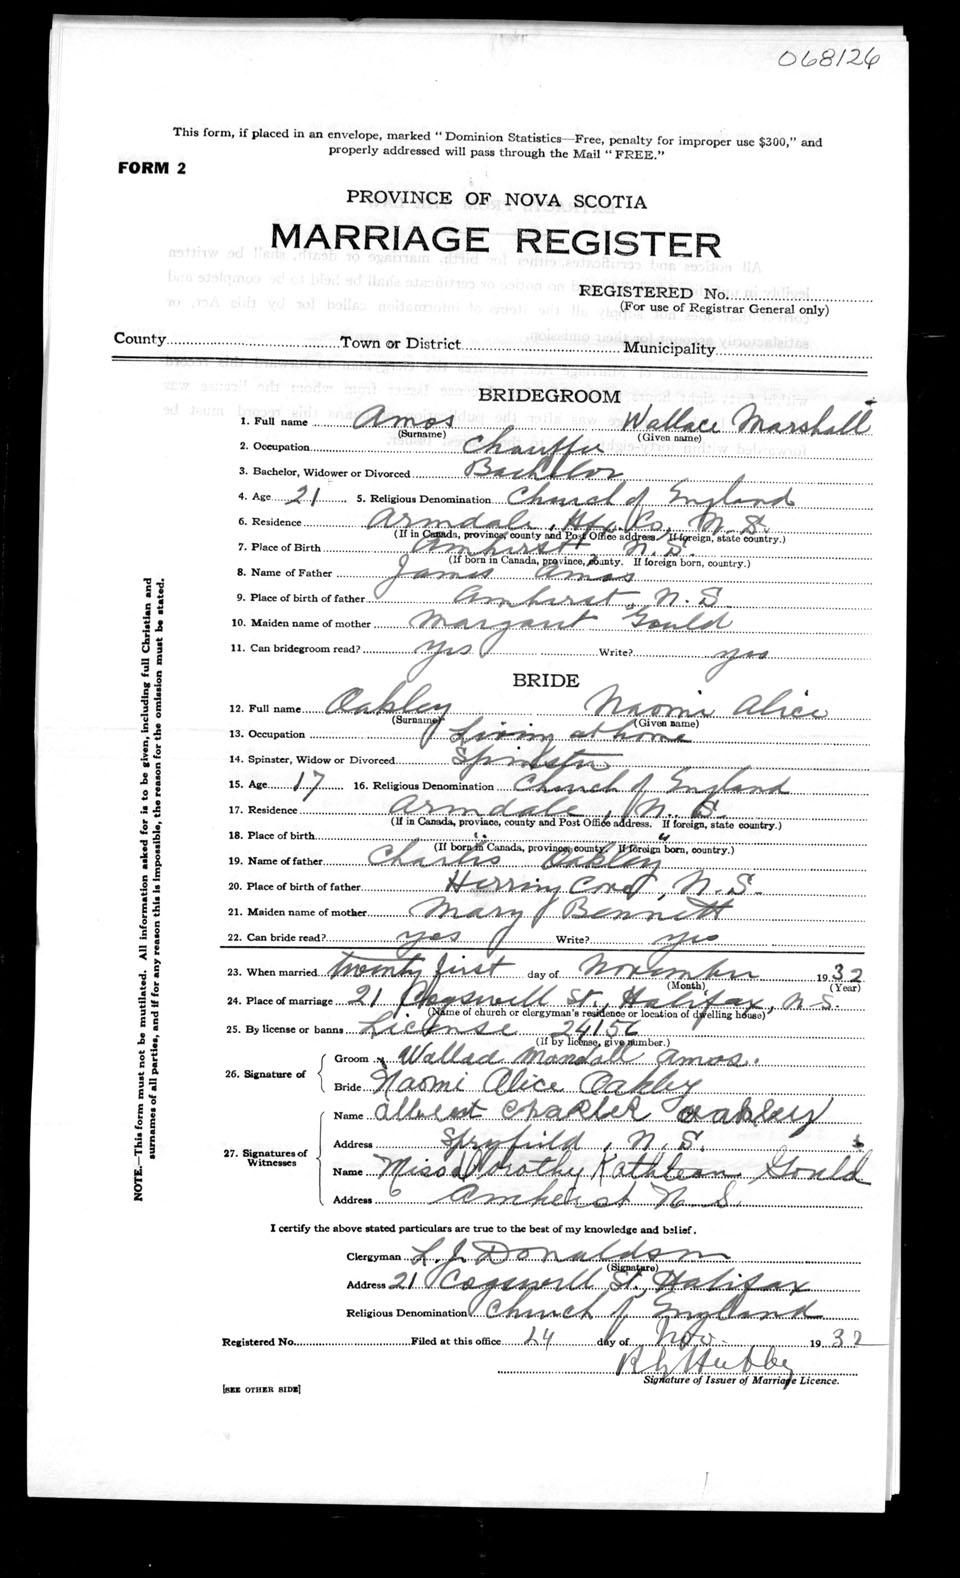 068126
This form, if placed in an envelope, marked " Dominion Statistics—Free, penalty for improper use $300," and
properly addressed will pass through the Mail " FREE."
FORM 2
PROVINCE OF NOVA SCOTIA
MARRIAGE REGISTER
REGISTERED No.
(For use of Registrar General only)
County Town or District Municipality
BRIDEGROOM
1. Full name Amos Wallace Marshall
(Surname) (Given name)
2. Occupation Chauffer
3. Bachelor, Widower or Divorced Bachelor
4. Age 21 5. Religious Denomination Church of England
6. Residence Armdale, Hfx. Co, N.S.
(If in Canada, province, county and Post Office address. If foreign, state country.)
7. Place of Birth Amherst N.S.
(If born in Canada, province, county. If foreign born, country.)
8. Name of Father James Amos
9. Place of birth of father Amherst, N.S.
10. Maiden name of mother Margaret Gould
11. Can bridegroom read? yes Write? yes
BRIDE
12. Full name Oakley Naomi Alice
(Surname) (Given name)
13. Occupation Living at home
14. Spinster, Widow or Divorced Spinster
15. Age 17 16. Religious Denomination Church of England
17. Residence Armdale, N.S.
(If in Canada, province, county and Post Office address. If foreign, state country.)
18. Place of birth " "
(If born in Canada, province, county. If foreign born, country.)
19. Name of father Charles Oakley
20. Place of birth of father Herring Cove, N.S.
21. Maiden name of mother Mary Bennett
22. Can bride read? yes Write? yes
23. When married twenty first day of November 1932
(Month) (Year)
24. Place of marriage 21 Cogswell St., Halifax, N.S.
(Name of church or clergyman's residence or location of dwelling house)
25. By license or banns License 24156
(If by license, give number.)
26. Signature of Groom Wallace Marshall Amos.
Bride Naomi Alice Oakley
27. Signatures of Witnesses Name Albert Charles Oakley
Address Spryfield, N.S.
Name Miss Dorothy Kathleen Gould
Address Amherst N.S.
I certify the above stated particulars are true to the best of my knowledge and belief.
Clergyman L. J. Donaldson
(Signature)
Address 21 Cogswell St, Halifax
Religious Denomination Church of England
Registered No. Filed at this office 24 day of Nov. 1932
Signature of Issuer of Marriage Licence.
[SEE OTHER SIDE]
NOTE.—This form must not be mutilated. All information asked for is to be given, including full Christian and
surnames of all parties, and if for any reason this is impossible, the reason for the omission must be stated.